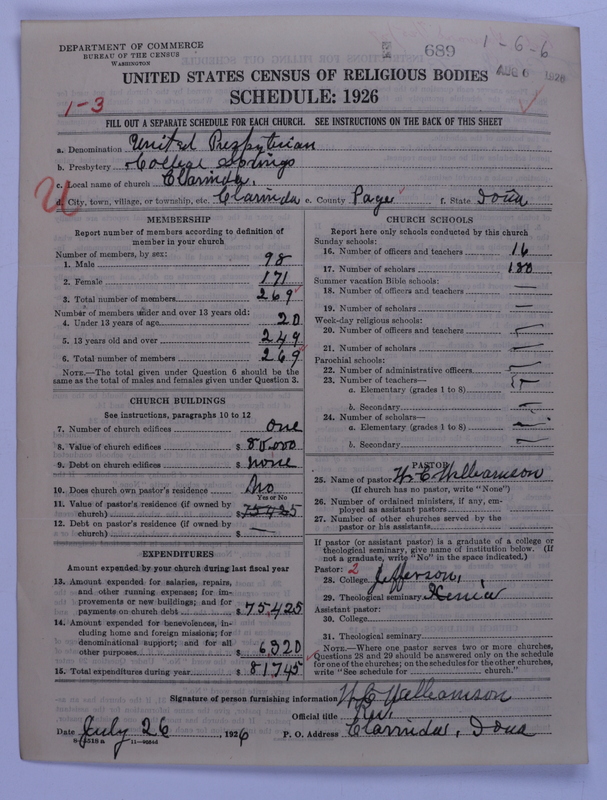 DEPARTMENT OF COMMERCE
BUREAU OF THE CENSUS
WASHINGTON
689
1-6-6
AUG 6 1926
UNITED STATES CENSUS OF RELIGIOUS BODIES
1-3
SCHEDULE: 1926
FILL OUT A SEPARATE SCHEDULE FOR EACH CHURCH. SEE INSTRUCTIONS ON THE BACK OF THIS SHEET
a. Denomination United Presbyterian
b. Presbytery College Springs
c. Local name of church Clarinda.
d. City, town, village, or township, etc. Clarinda e. County Page f. State Iowa
MEMBERSHIP
Report number of members according to definition of
member in your church
Number of members, by sex:
1. Male 98
2. Female 171
3. Total number of members 269
Number of members under and over 13 years old:
4. Under 13 years of age 20
5. 13 years old and over 249
6. Total number of members 269
NOTE.—The total given under Question 6 should be the
same as the total of males and females given under Question 3.
CHURCH BUILDINGS
See instructions, paragraphs 10 to 12
7. Number of church edifices One
8. Value of church edifices $ 80.000
9. Debt on church edifices $ none
10. Does church own pastor's residence No
Yes or No
11. Value of pastor's residence (if owned by
church) $ 75425
12. Debt on pastor's residence (if owned by
church) $ —
EXPENDITURES
Amount expended by your church during last fiscal year
13. Amount expended for salaries, repairs,
and other running expenses; for im-
provements or new buildings; and for
payments on church debt $ 75425
14. Amount expended for benevolences, in-
cluding home and foreign missions; for
denominational support; and for all
other purposes $ 6320
15. Total expenditures during year $ 81745
CHURCH SCHOOLS
Report here only schools conducted by this church
Sunday schools:
16. Number of officers and teachers 16
17. Number of scholars 180
Summer vacation Bible schools:
18. Number of officers and teachers —
19. Number of scholars —
Week-day religious schools:
20. Number of officers and teachers
21. Number of scholars
Parochial schools:
22. Number of administrative officers
23. Number of teachers—
a. Elementary (grades 1 to 8)
b. Secondary
24. Number of scholars—
a. Elementary (grades 1 to 8)
b. Secondary
PASTOR
25. Name of pastor W. C. Williamson
(If church has no pastor, write "None")
26. Number of ordained ministers, if any, em-
ployed as assistant pastors
27. Number of other churches served by the
pastor or his assistants
If pastor (or assistant pastor) is a graduate of a college or
theological seminary, give name of institution below. (If
not a graduate, write "No" in the space indicated.)
Pastor: 2
28. College Jefferson,
29. Theological seminary Xenia
Assistant pastor:
30. College
31. Theological seminary
NOTE.—Where one pastor serves two or more churches,
Questions 28 and 29 should be answered only on the schedule
for one of the churches; on the schedules for the other churches,
write "See schedule for church."
Signature of person furnishing information W. C. Williamson
Official title Rev.
Date July 26, 1926 P. O. Address Clarinda, Iowa